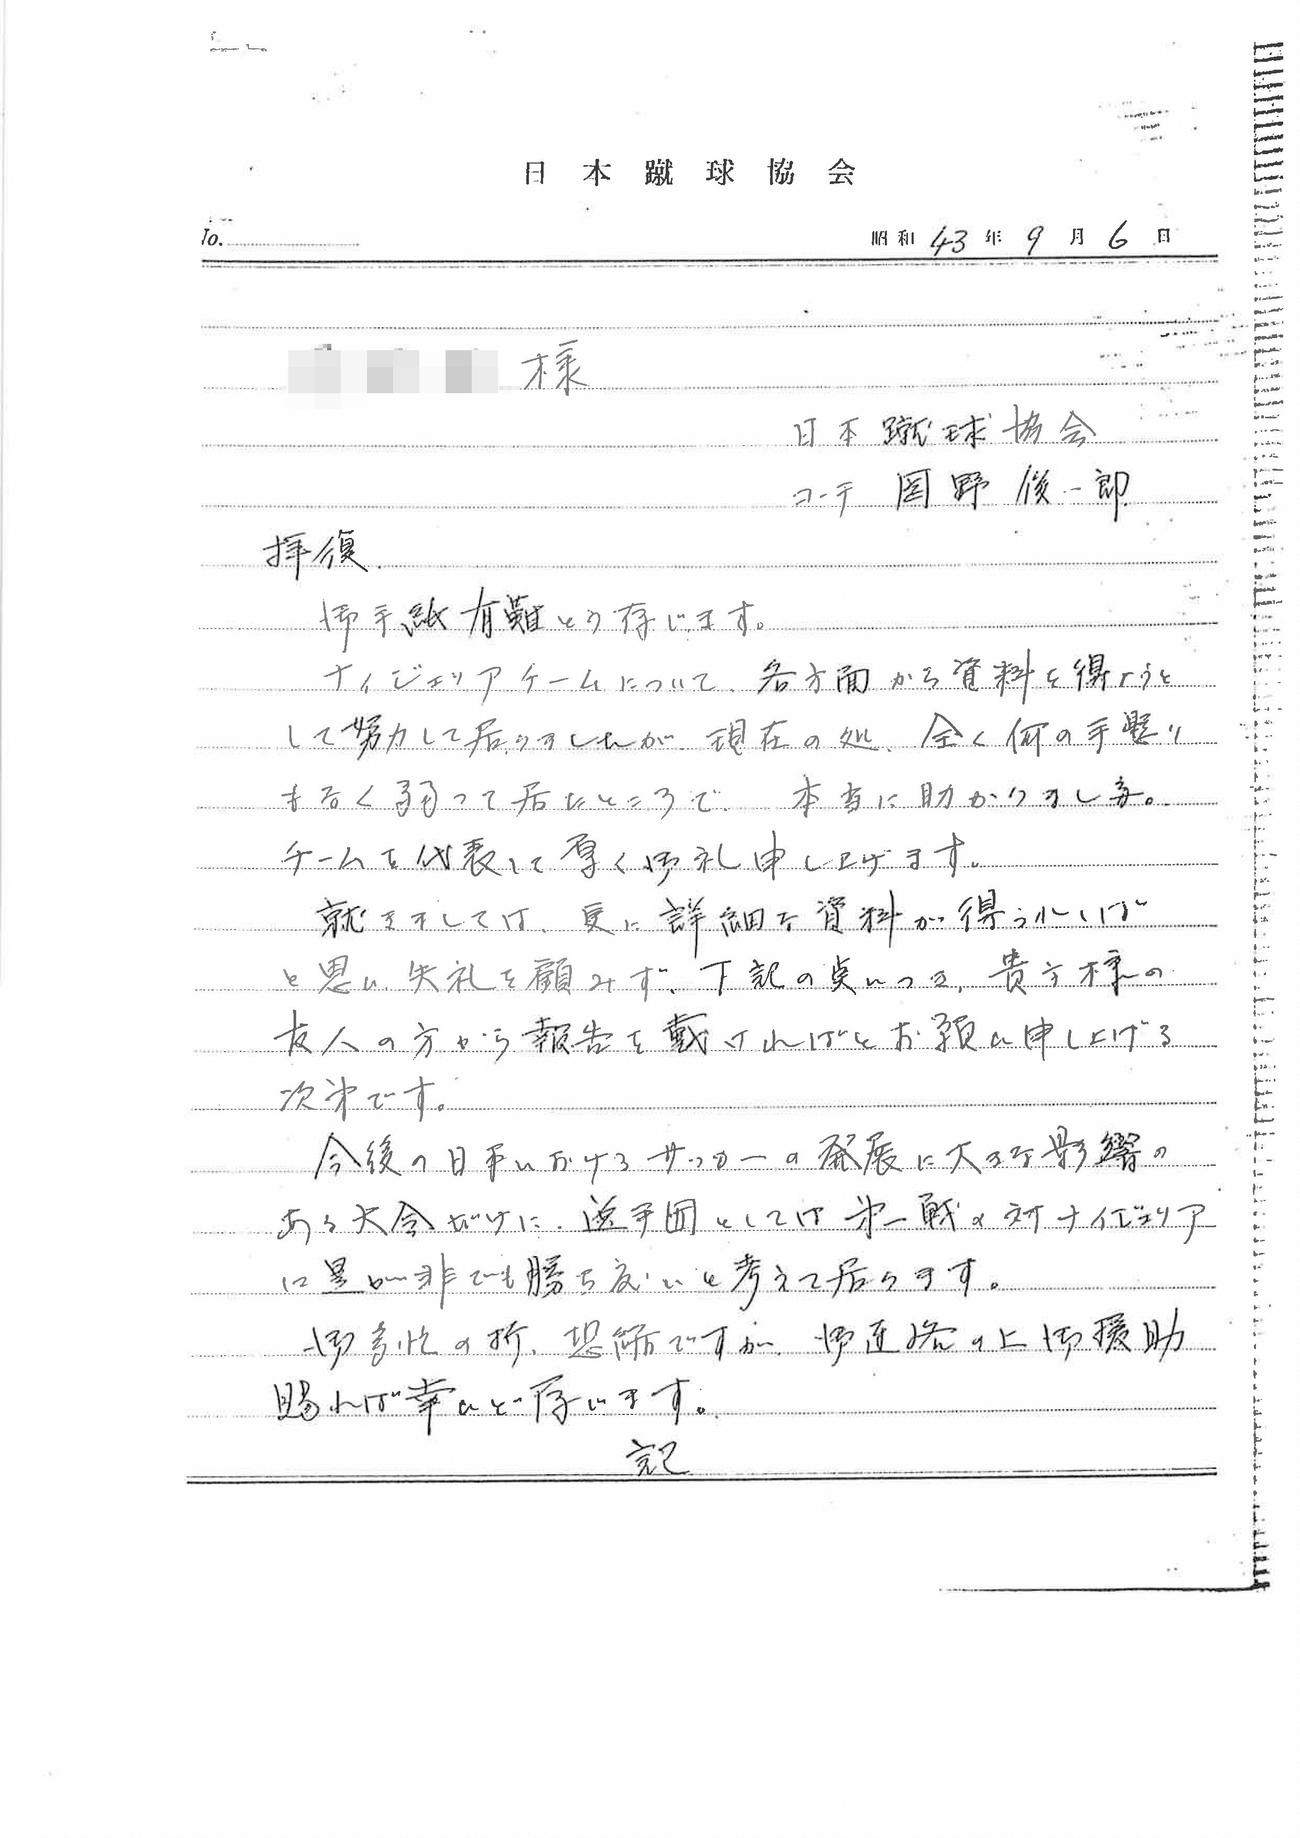 日本蹴球協会
No.
昭和43年9月6日
様
日本蹴球協会
コーチ 岡野俊一郎
拝復.
御手紙有難とう存じます。
ナイジェリアチームについて、各方面から資料を得ようと
して努力して居りましたが、現在の処、全く何の手懸り
もなく弱って居たところで、本当に助かりました。
チームを代表して厚く御礼申し上げます。
就きましては、更に詳細な資料が得られれば
と思い、失礼を顧みず、下記の点につき、貴方様の
友人の方から報告を戴ければとお願い申し上げる
次第です。
今後の日本におけるサッカーの発展に大きな影響の
ある大会だけに、選手団としては第一戦の対ナイジェリア
に是が非でも勝ち度いと考えて居ります。
御多忙の折、恐縮ですが、御連絡の上御援助
賜れば幸いと存じます。
記